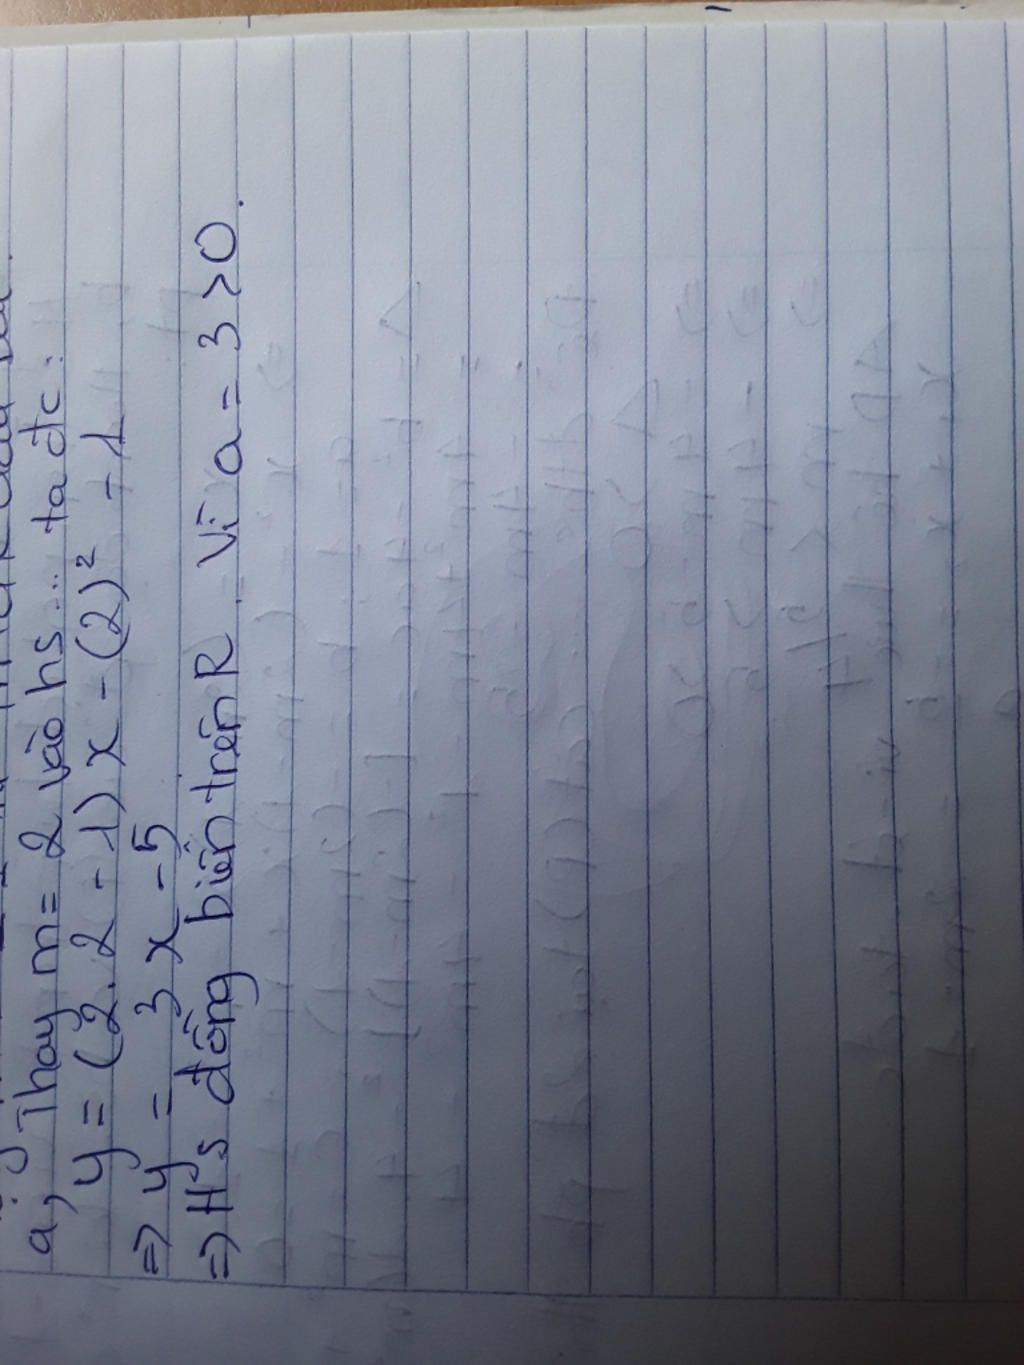 a, Thay m = 2 vào hs ... ta đc :
y = (2.2 - 1) x - (2)² - 1
=> y = 3x - 5
=> Hs đồng biến trên R. Vì a = 3 > 0.